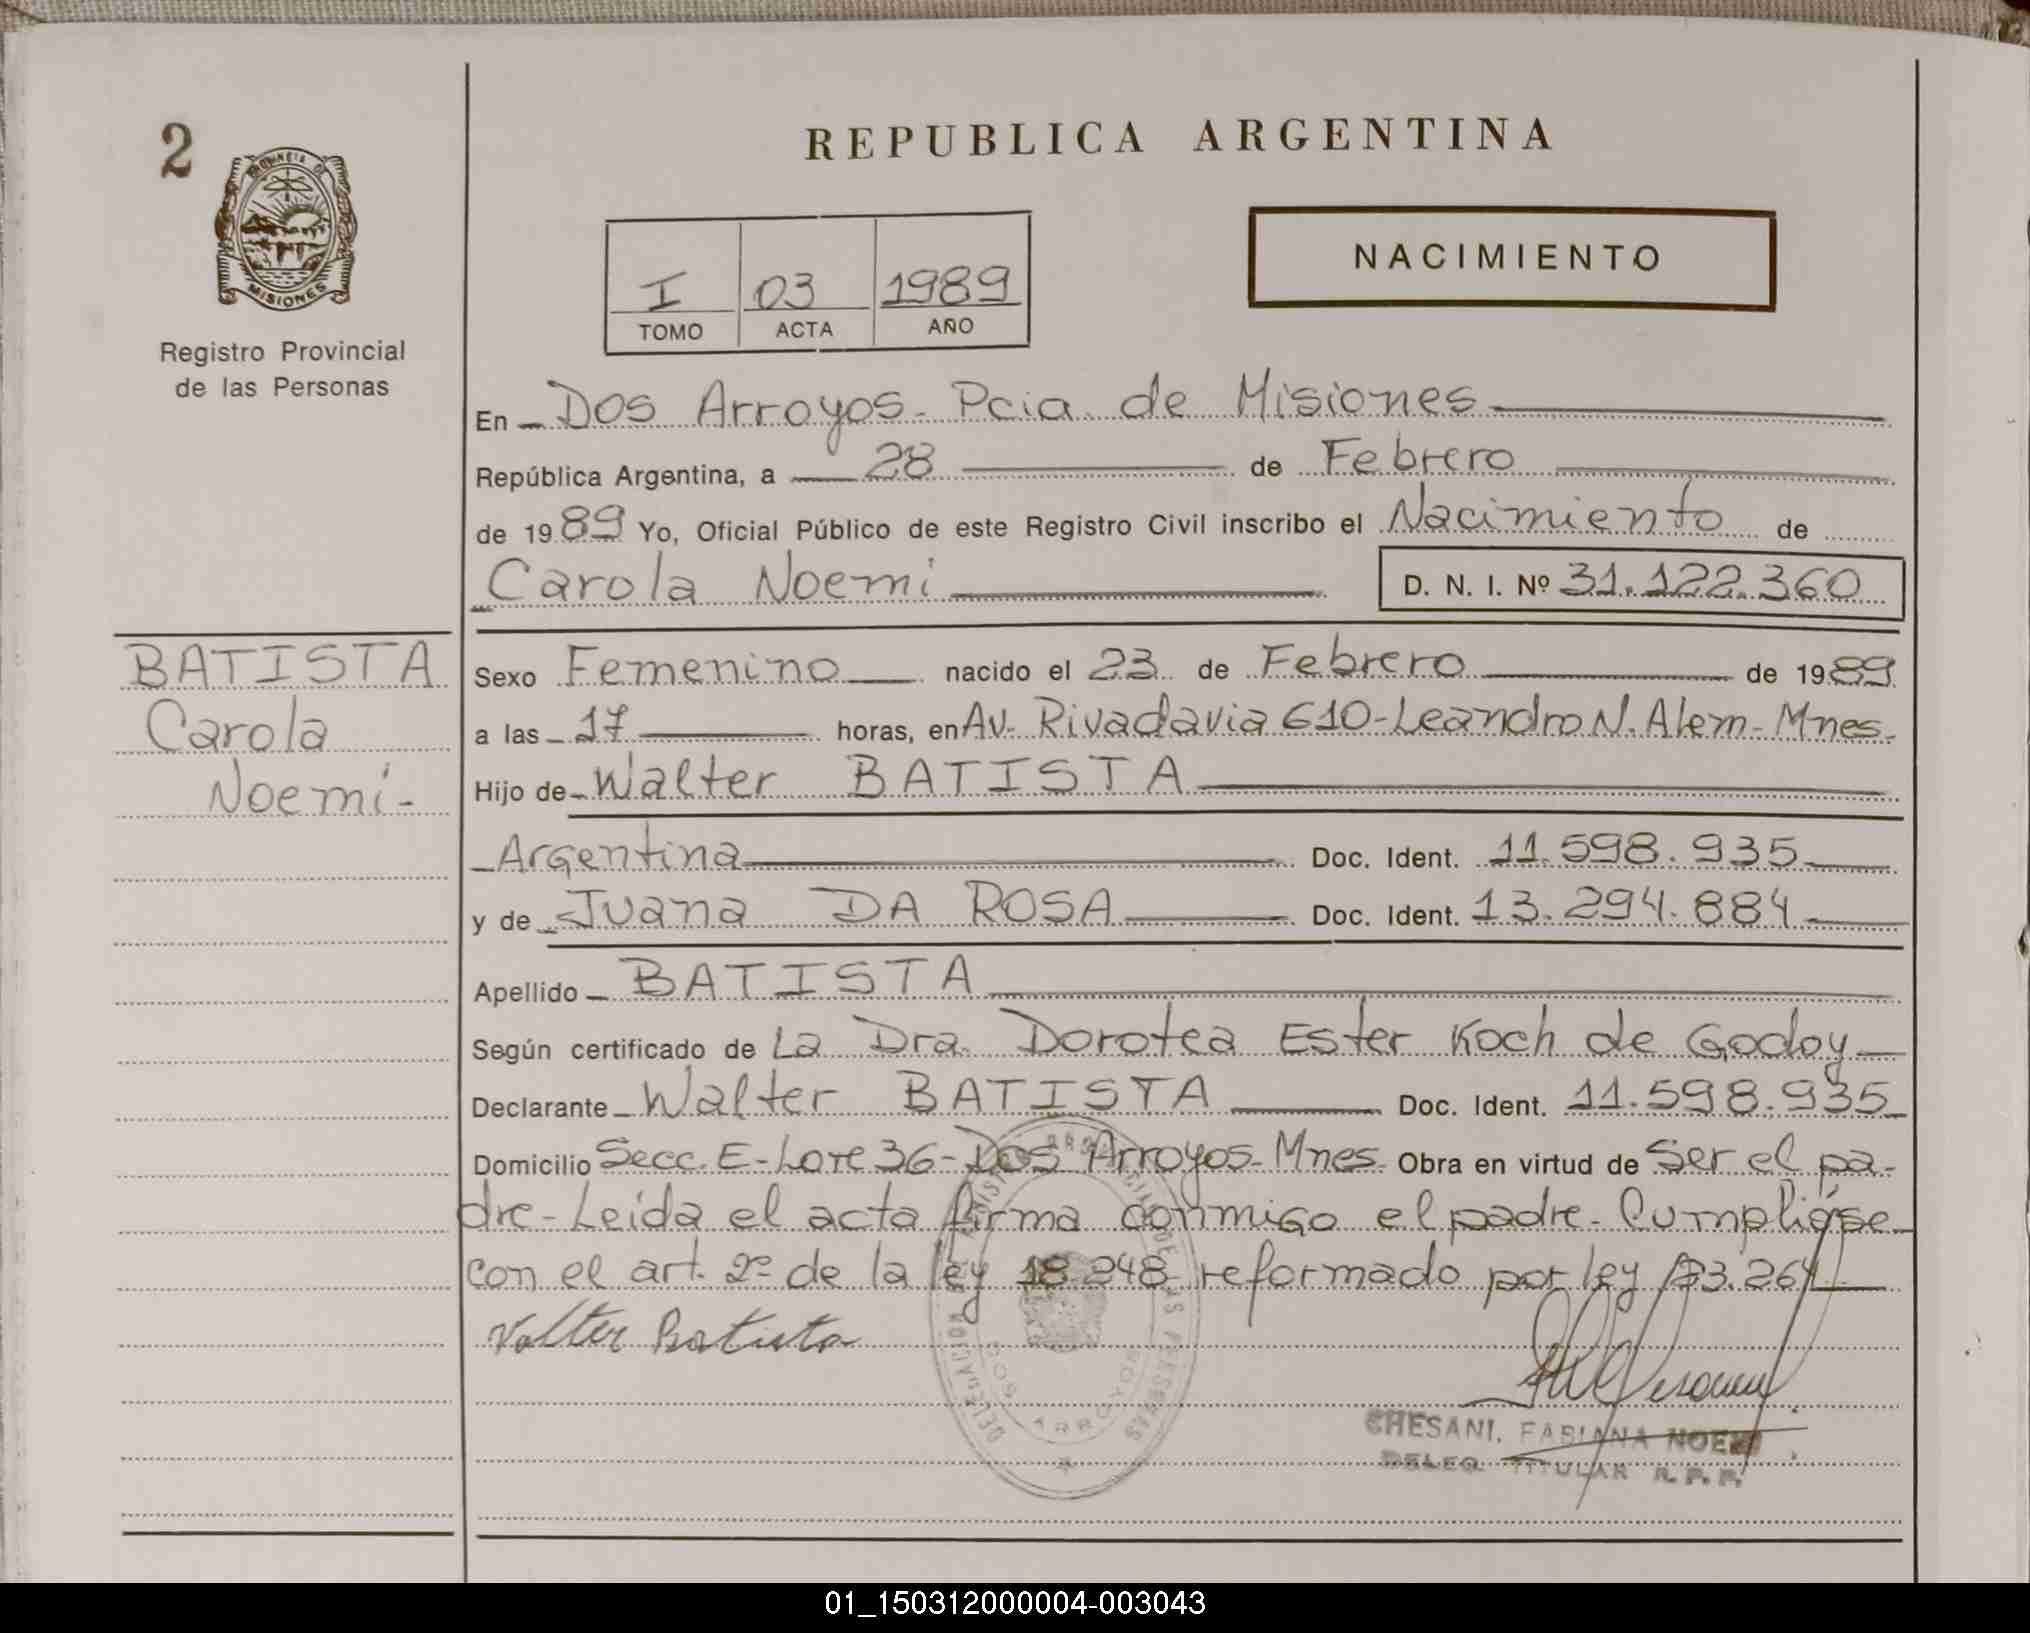 2
PROVINCIA DE
MISIONES
Registro Provincial
de las Personas
REPUBLICA ARGENTINA
I 03 1989
TOMO ACTA AÑO
NACIMIENTO
En Dos Arroyos - Pcia. de Misiones
República Argentina, a 28 de Febrero
de 1989 Yo, Oficial Público de este Registro Civil inscribo el Nacimiento de
Carola Noemi D. N. I. Nº 31.122.360
BATISTA
Carola
Noemi-
Sexo Femenino nacido el 23 de Febrero de 1989
a las 17 horas, en Av. Rivadavia 610-Leandro N. Alem- Mnes.
Hijo de Walter BATISTA
Argentina Doc. Ident. 11.598.935
y de Juana DA ROSA Doc. Ident. 13.294.884
Apellido BATISTA
Según certificado de La Dra. Dorotea Ester Koch de Godoy
Declarante Walter BATISTA Doc. Ident. 11.598.935
Domicilio Secc. E-Lote 36-Dos Arroyos-Mnes. Obra en virtud de Ser el pa-
dre-Leída el acta firma conmigo el padre. Cumplióse
con el art. 2º de la ley 18.248 reformado por ley 23.264
Valter Batista
DELEGACION DOS ARROYOS
CHESANI, FABIANA NOEMI
DELEG. TITULAR R. P. P.
01_150312000004-003043